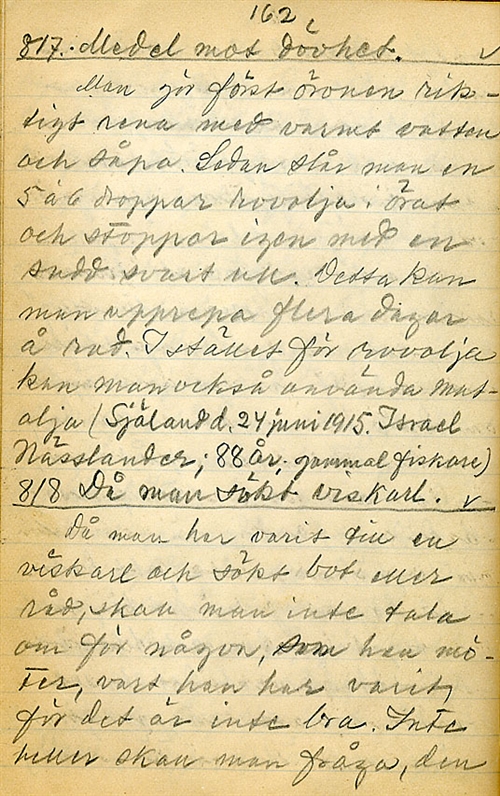 162.
817. Medel mot dövhet. ✓
Man gör först öronen rik-
tigt rena med varmt vatten
och såpa. Sedan slår man en
5 à 6 droppar rovolja i örat
och stoppar igen med en
sudd svart ull. Detta kan
man upprepa flera dagar
å rad. I stället för rovolja
kan man också använda mat-
olja (Själand d. 24 juni 1915. Israel
Nässlander; 88 år; gammal fiskare)
818 Då man sökt viskarl. ✓
Då man har varit till en
viskarl och sökt bot eller
råd, skall man inte tala
om för någon, som han mö-
ter, vart han har varit,
för det är inte bra. Inte
heller skall man fråga, den